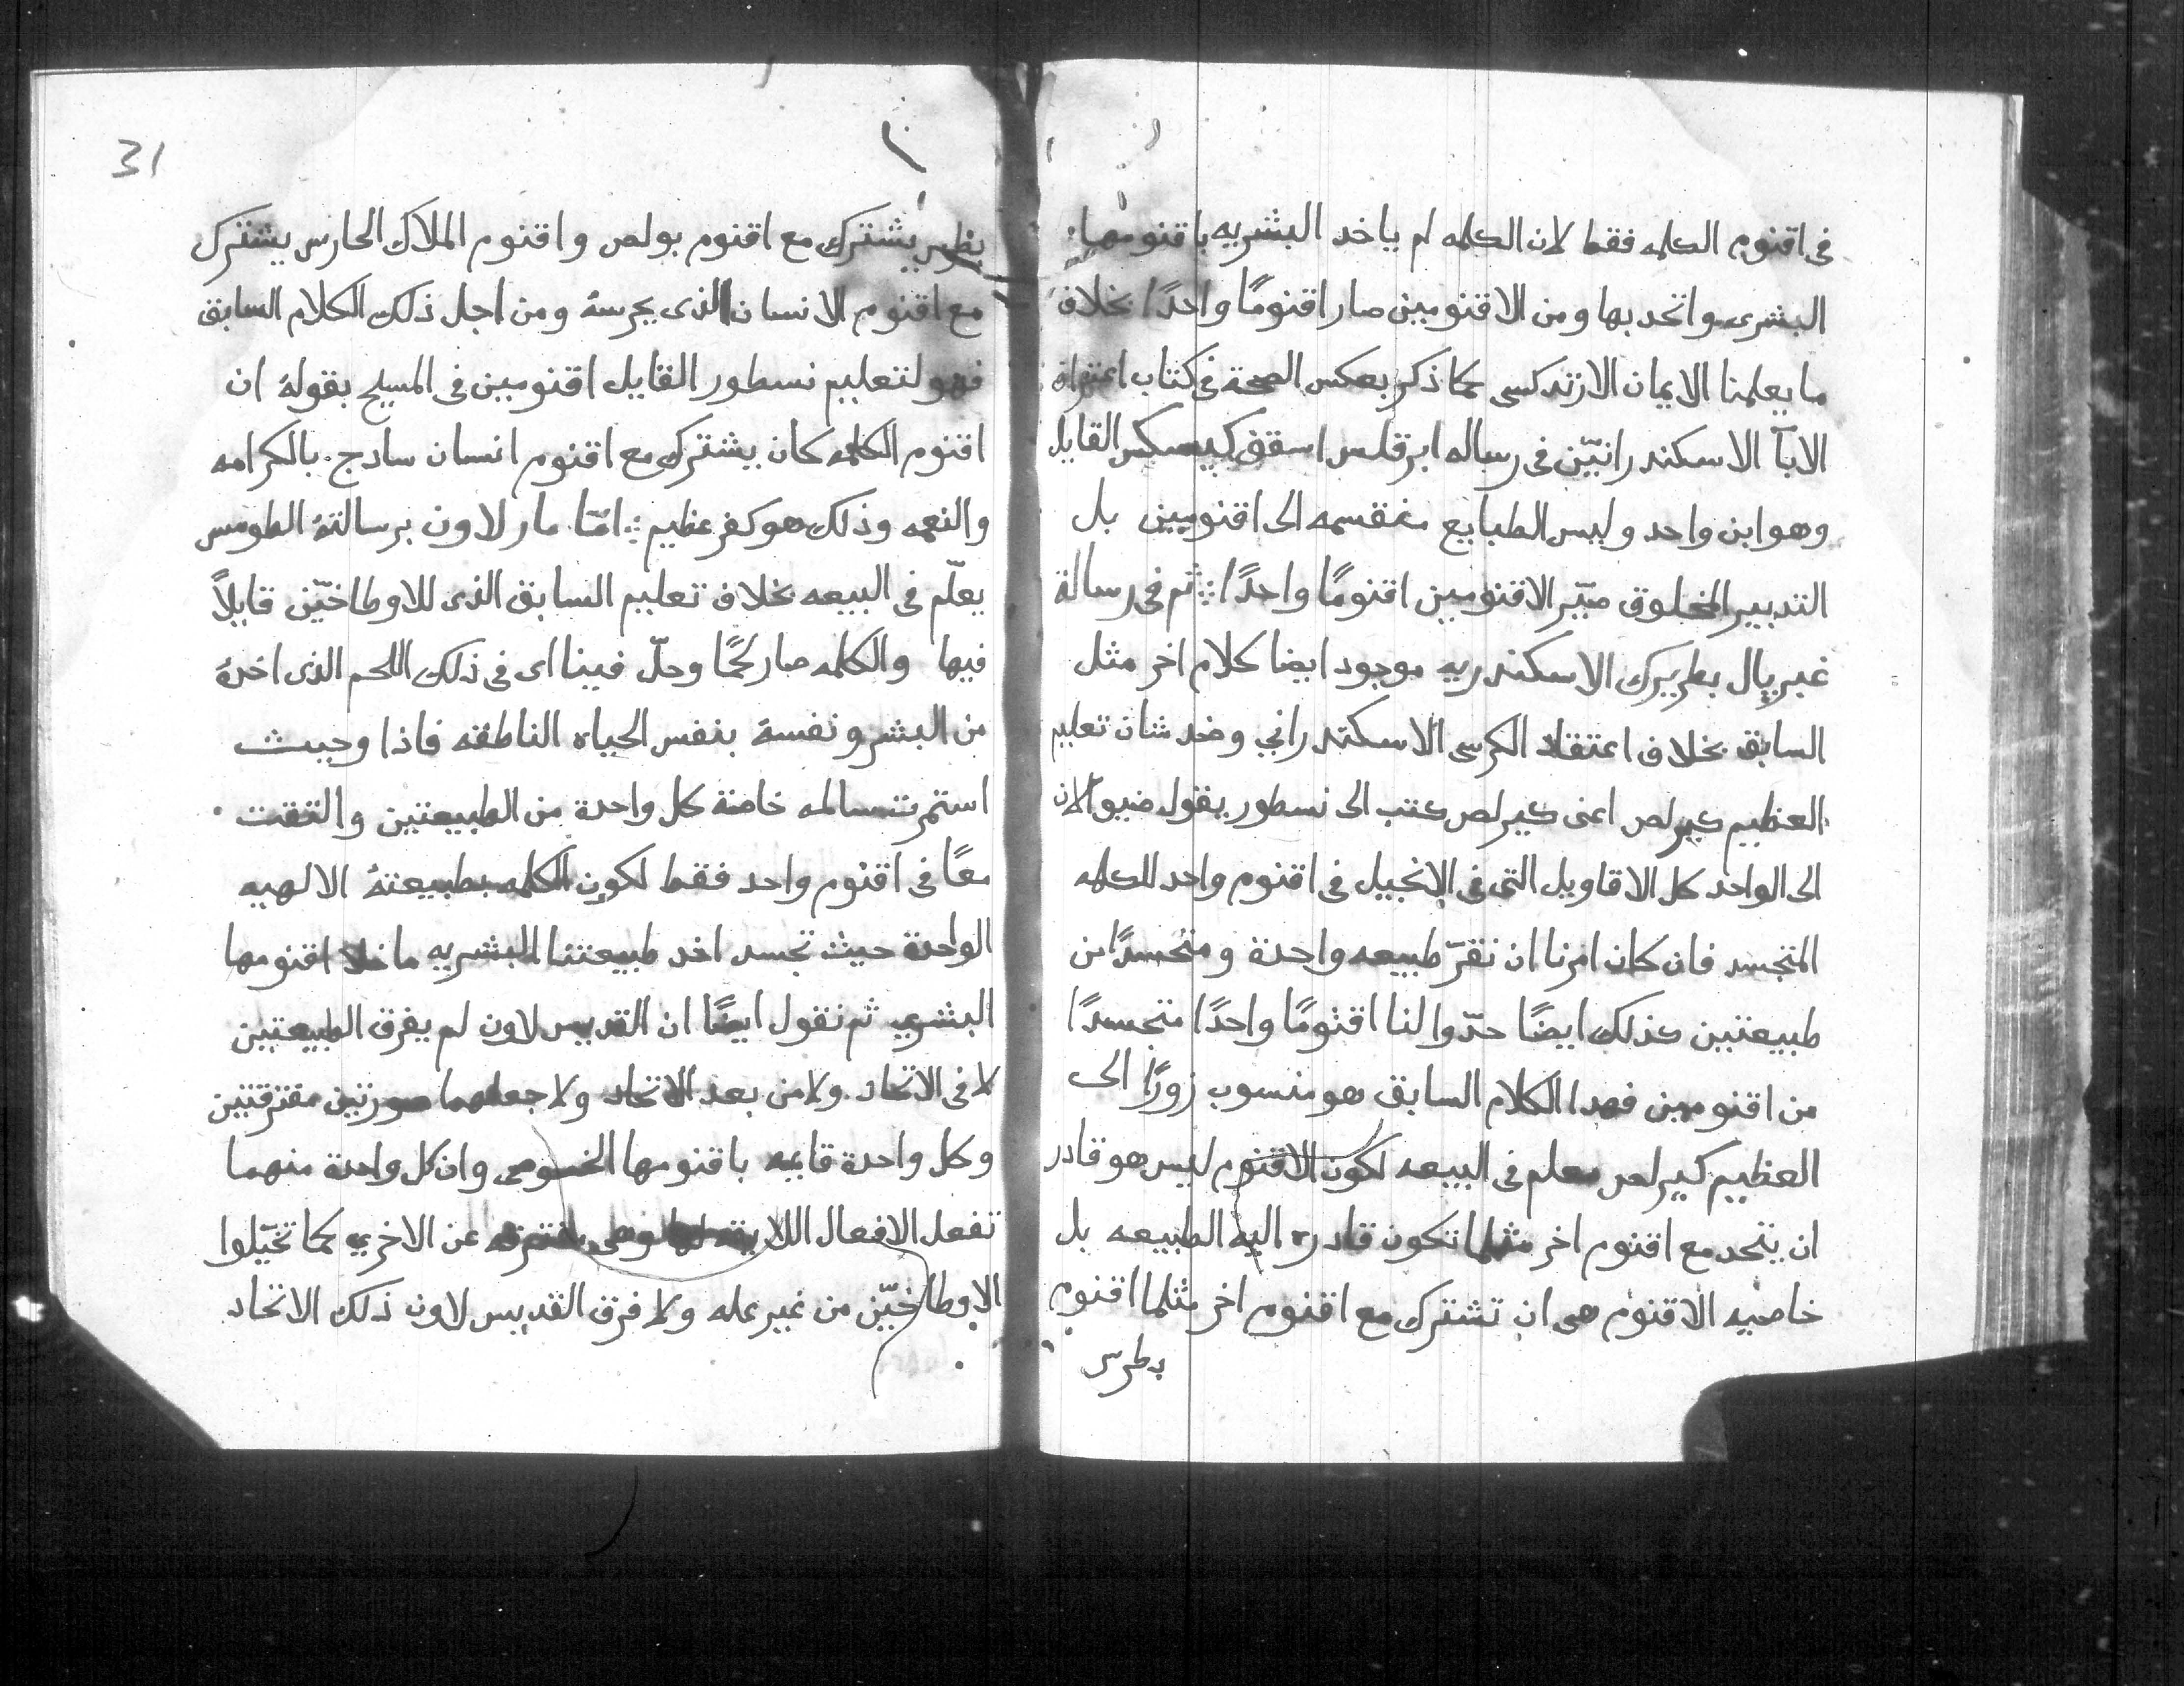 فى اقنوم الكلمه فقط لان الكلمه لم ياخد البشريه باقنومها
البشرى واتحد بها ومن الاقنومين صار اقنومًا واحدًا بخلاف
ما يعلمنا الايمان الارتدكسى كما ذكر بعكس الصحة فى كتاب اعتراف
الابآ الاسكندرانيّن فى رساله ابرقلس اسقف القايل
وهو ابن واحد وليس الطبايع منقسمه الى اقنومين بل
التدبير المخلوق صيّر الاقنومين اقنومًا واحدًا ثم فى رسالة
غبريال بطريرك الاسكندريه موجود ايضا كلام اخر مثل
السابق بخلاف اعتقاد الكرسى الاسكندراني وضد شان تعليم
العظيم كيرلص اعنى كيرلص كتب الى نسطور يقول ضيوا الان
الى الواحد كل الاقاويل التى فى الانجيل فى اقنوم واحد للكلمه
المتجسد فان كان امرنا ان نقرّ طبيعه واحدة ومتجسدًا من
طبيعتين كذلك ايضًا حدّوا لنا اقنومًا واحدًا متجسدًا
من اقنومين فهدا الكلام السابق هو منسوب زورًا الى
العظيم كيرلص معلم فى البيعه لكون الاقنوم ليس هو قادر
ان يتحد مع اقنوم اخر مثلما تكون قادره اليه الطبيعه بل
خاصيه الاقنوم هى ان تشترك مع اقنوم اخر مثلما اقنوم
بطرس
31
بطرس يشترك مع اقنوم بولص واقنوم الملاك الحارس يشترك
مع اقنوم الانسان الذى يحرسهُ ومن اجل ذلك الكلام السابق
فهو لتعليم نسطور القايل اقنومين فى المسيح بقولهُ ان
اقنوم الكلمه كان يشترك مع اقنوم انسان سادج بالكرامه
والنعمه وذلك هو كفر عظيم امّا مار لاون برسالتهُ الطومس
يعلّم فى البيعه بخلاف تعليم السابق الذى للاوطاخيّن قايلاً
فيها والكلمه صار لحمًا وحلّ فينا اى فى ذلك اللحم الذى اخدهُ
من البشر ونفسهُ بنفس الحياه الناطقه فاذا وجبت
استمرت سالمه خاصة كل واحدة من الطبيعتين والتقت
معًا فى اقنوم واحد فقط لكون الكلمه بطبيعتهُ الالهيه
الواحدة حيث تجسد اخد طبيعتنا البشريه ما خلا اقنومها
البشري ثم نقول ايضًا ان القديس لاون لم يفرق الطبيعتين
لا فى الاتحاد ولا من بعد الاتحاد ولا جعلهما صورتين مفترقتين
وكل واحدة قايمه باقنومها الخصوصى وان كل واحدة منهما
تفعل الافعال اللايقه لها وهى مفترقه عن الاخري كما تخيّلوا
الاوطاخيّن من غير عله ولا فرق القديس لاون ذلك الاتحاد